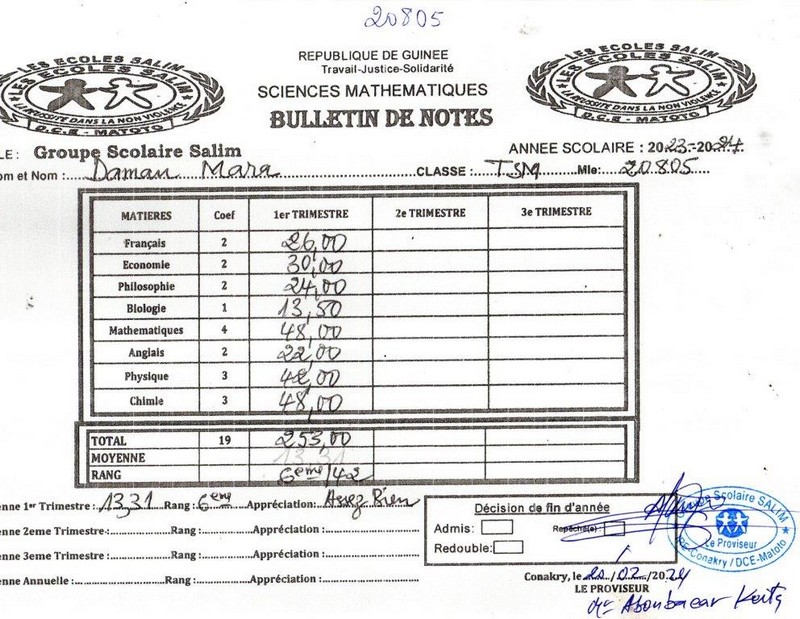 20805
LES ECOLES SALIM
LES ECOLES SALIM
LA REUSSITE DANS LA NON VIOLENCE
D.C.E - MATOTO
REPUBLIQUE DE GUINEE
Travail-Justice-Solidarité
SCIENCES MATHEMATIQUES
BULLETIN DE NOTES
LES ECOLES SALIM
LES ECOLES SALIM
LA REUSSITE DANS LA NON VIOLENCE
D.C.E - MATOTO
LE : Groupe Scolaire Salim ANNEE SCOLAIRE : 2023-2024
om et Nom : Daman Mara CLASSE : TSM Mle: 20805
MATIERES Coef 1er TRIMESTRE 2e TRIMESTRE 3e TRIMESTRE
Français 2 26,00
Economie 2 30,00
Philosophie 2 24,00
Biologie 1 13,50
Mathematiques 4 48,00
Anglais 2 22,00
Physique 3 42,00
Chimie 3 48,00
TOTAL 19 253,00
MOYENNE 13,31
RANG 6eme/42
enne 1er Trimestre : 13,31 Rang : 6eme Appréciation: Assez Bien
enne 2eme Trimestre : Rang : Appréciation :
enne 3eme Trimestre : Rang : Appréciation :
enne Annuelle : Rang : Appréciation :
Décision de fin d'année
Admis: Repêché(e):
Redouble:
Groupe Scolaire SALIM
Le Proviseur
Conakry / DCE-Matoto
Conakry, le 20/02/2024
LE PROVISEUR
Mr Aboubacar Keita